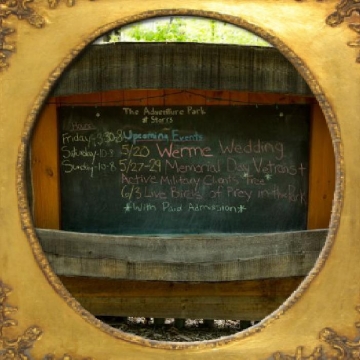 The Adventure Park
@ Storrs
Hours
Friday-3:30-8 Upcoming Events
Saturday-10-9 5/20 Werme Wedding
Sunday-10-8 5/27-29 Memorial Day Vetrans +
Active Military Climb Free*
6/3 Live Birds of Prey in the Park
*With Paid Admission*